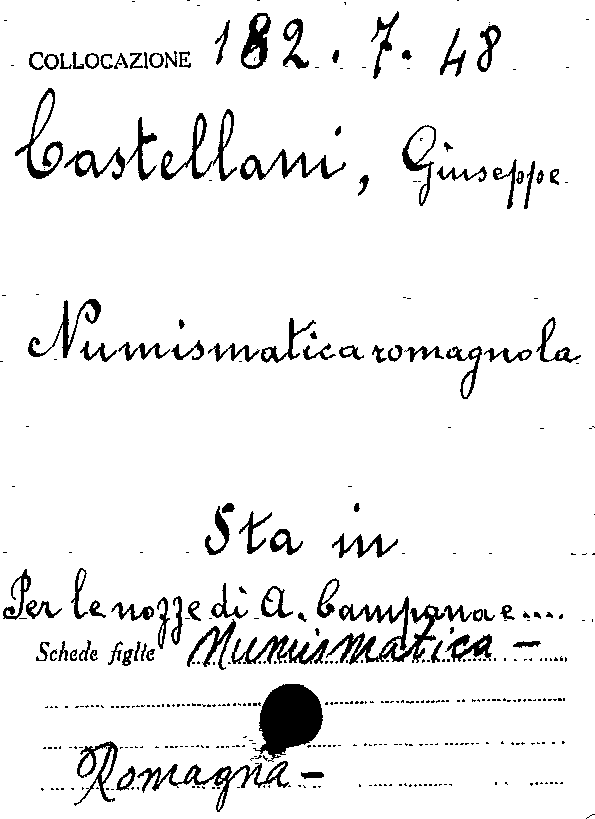 COLLOCAZIONE 182.7.48
Castellani, Giuseppe
Numismatica romagnola
Sta in
Per le nozze di A. Campana e....
Schede figlie Numismatica -
Romagna -